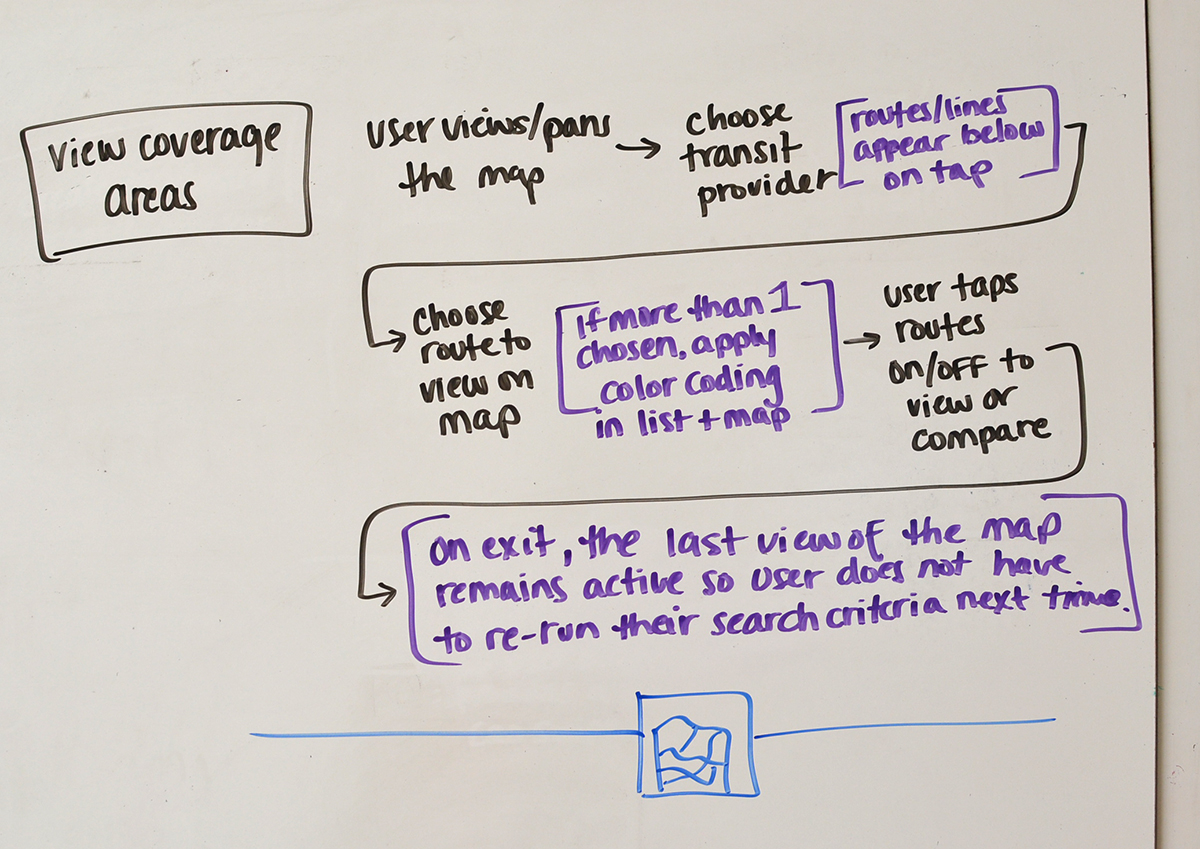 view coverage
areas
user views/pans
the map
choose
transit
provider
routes/lines
appear below
on tap
choose
route to
view on
map
if more than 1
chosen, apply
color coding
in list + map
user taps
routes
on/off to
view or
compare
on exit, the last view of the map
remains active so user does not have
to re-run their search criteria next time.